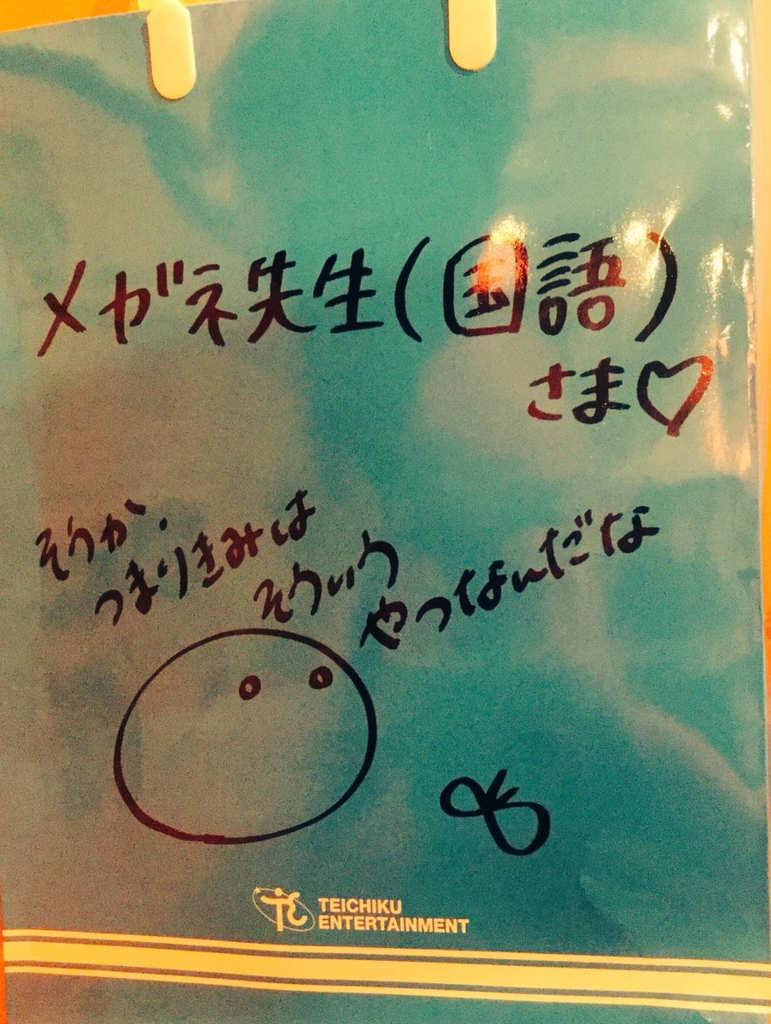 メガネ先生(国語)
さま♡
そうか、
つまりきみは
そういう
やつなんだな
TEICHIKU
ENTERTAINMENT